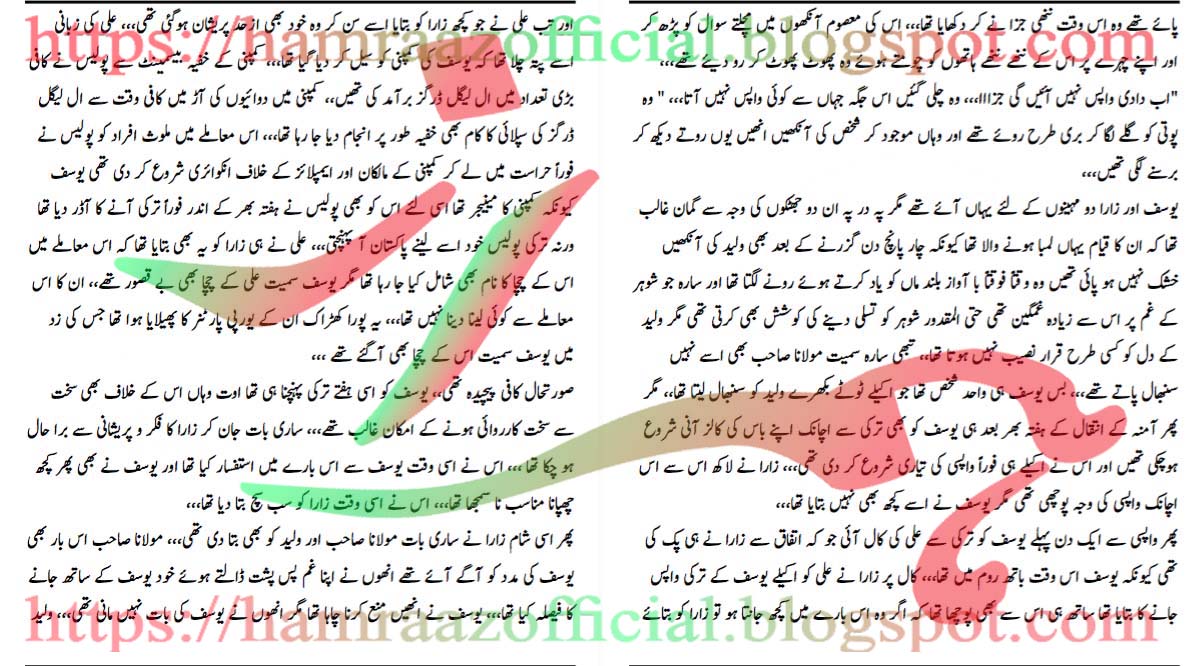 پائے تھے وہ اس وقت ننھی جزا نے کر دکھایا تھا،،، اس کی معصوم آنکھوں میں مچلتے سوال کو پڑھ کر
اور اپنے چہرے پر اس کے ننھے ننھے ہاتھوں کو چومتے ہوئے وہ پھوٹ پھوٹ کر رو دیئے تھے،،،
"اب دادی واپس نہیں آئیں گی جزااا،،، وہ چلی گئیں اس جگہ جہاں سے کوئی واپس نہیں آتا،،، " وہ
پوتی کو گلے لگا کر بری طرح روئے تھے اور وہاں موجود کر شخص کی آنکھیں انھیں یوں روتے دیکھ کر
برسنے لگی تھیں،،،
یوسف اور زارا دو مہینوں کے لئے یہاں آئے تھے مگر پہ در پہ ان دو جھٹکوں کی وجہ سے گمان غالب
تھا کہ ان کا قیام یہاں لمبا ہونے والا تھا کیونکہ چار پانچ دن گزرنے کے بعد بھی ولید کی آنکھیں
خشک نہیں ہو پائی تھیں وہ وقتاً فوقتاً با آواز بلند ماں کو یاد کرتے ہوئے رونے لگتا تھا اور سارہ جو شوہر
کے غم پر اس سے زیادہ غمگین تھی حتی المقدور شوہر کو تسلی دینے کی کوشش بھی کرتی تھی مگر ولید
کے دل کو کسی طرح قرار نصیب نہیں ہوتا تھا،،، تبھی سارہ سمیت مولانا صاحب بھی اسے نہیں
سنبھال پاتے تھے،،، بس یوسف ہی واحد شخص تھا جو اکیلے ٹوٹے بکھرے ولید کو سنبھال لیتا تھا،، مگر
پھر آمنہ کے انتقال کے ہفتہ بھر بعد ہی یوسف کو بھی ترکی سے اچانک اپنے باس کی کالز آنی شروع
ہو چکی تھیں اور اس نے اکیلے ہی فوراً واپسی کی تیاری شروع کر دی تھی،،، زارا نے لاکھ اس سے اس
اچانک واپسی کی وجہ پوچھی تھی مگر یوسف نے اسے کچھ بھی نہیں بتایا تھا،،،
پھر واپسی سے ایک دن پہلے یوسف کو ترکی سے علی کی کال آئی جو کہ اتفاق سے زارا نے ہی پک کی
تھی کیونکہ یوسف اس وقت باتھ روم میں تھا،،، کال پر زارا نے علی کو اکیلے یوسف کے ترکی واپس
جانے کا بتایا تھا ساتھ ہی اس سے بھی پوچھا تھا کہ اگر وہ اس بارے میں کچھ جانتا ہو تو زارا کو بتائے
اور تب علی نے جو کچھ زارا کو بتایا اسے سن کر وہ خود بھی از حد پریشان ہو گئی تھی،،، علی کی زبانی
اسے پتہ چلا تھا کہ یوسف کی کمپنی کو سیل کر دیا گیا تھا،،، کمپنی کے خفیہ بیسمینٹ سے پولیس نے کافی
بڑی تعداد میں ال لیگل ڈرگز برآمد کی تھیں،، کمپنی میں دوائیوں کی آڑ میں کافی وقت سے ال لیگل
ڈرگز کی سپلائی کا کام بھی خفیہ طور پر انجام دیا جا رہا تھا،،، اس معاملے میں ملوث افراد کو پولیس نے
فوراً حراست میں لے کر کمپنی کے مالکان اور ایمپلائز کے خلاف انکوائری شروع کر دی تھی یوسف
کیونکہ کمپنی کا مینیجر تھا اسی لئے اس کو بھی پولیس نے ہفتہ بھر کے اندر فوراً ترکی آنے کا آڈر دیا تھا
ورنہ ترکی پولیس خود اسے لینے پاکستان آ پہنچتی،،، علی نے ہی زارا کو یہ بھی بتایا تھا کہ اس معاملے میں
اس کے چچا کا نام بھی شامل کیا جا رہا تھا مگر یوسف سمیت علی کے چچا بھی بے قصور تھے،، ان کا اس
معاملے سے کوئی لینا دینا نہیں تھا،،، یہ پورا کھڑاک ان کے یورپی پارٹنر کا پھیلایا ہوا تھا جس کی زد
میں یوسف سمیت اس کے چچا بھی آ گئے تھے ،،،
صورتحال کافی پیچیدہ تھی،، یوسف کو اسی ہفتے ترکی پہنچنا ہی تھا اوت وہاں اس کے خلاف بھی سخت
سے سخت کارروائی ہونے کے امکان غالب تھے،،، ساری بات جان کر زارا کا فکر و پریشانی سے برا حال
ہو چکا تھا ،،، اس نے اسی وقت یوسف سے اس بارے میں استفسار کیا تھا اور یوسف نے بھی پھر کچھ
چھپانا مناسب نا سمجھا تھا،،، اس نے اسی وقت زارا کو سب سچ بتا دیا تھا،،،
پھر اسی شام زارا نے ساری بات مولانا صاحب اور ولید کو بھی بتا دی تھی،،، مولانا صاحب اس بار بھی
یوسف کی مدد کو آگے آئے تھے انھوں نے اپنا غم پس پشت ڈالتے ہوئے خود یوسف کے ساتھ جانے
کا فیصلہ کیا تھا،،، یوسف نے انھیں منع کرنا چاہا تھا مگر انھوں نے یوسف کی بات نہیں مانی تھی،،، ولید
https://hamraazofficial.blogspot.com
https://hamraazofficial.blogspot.com